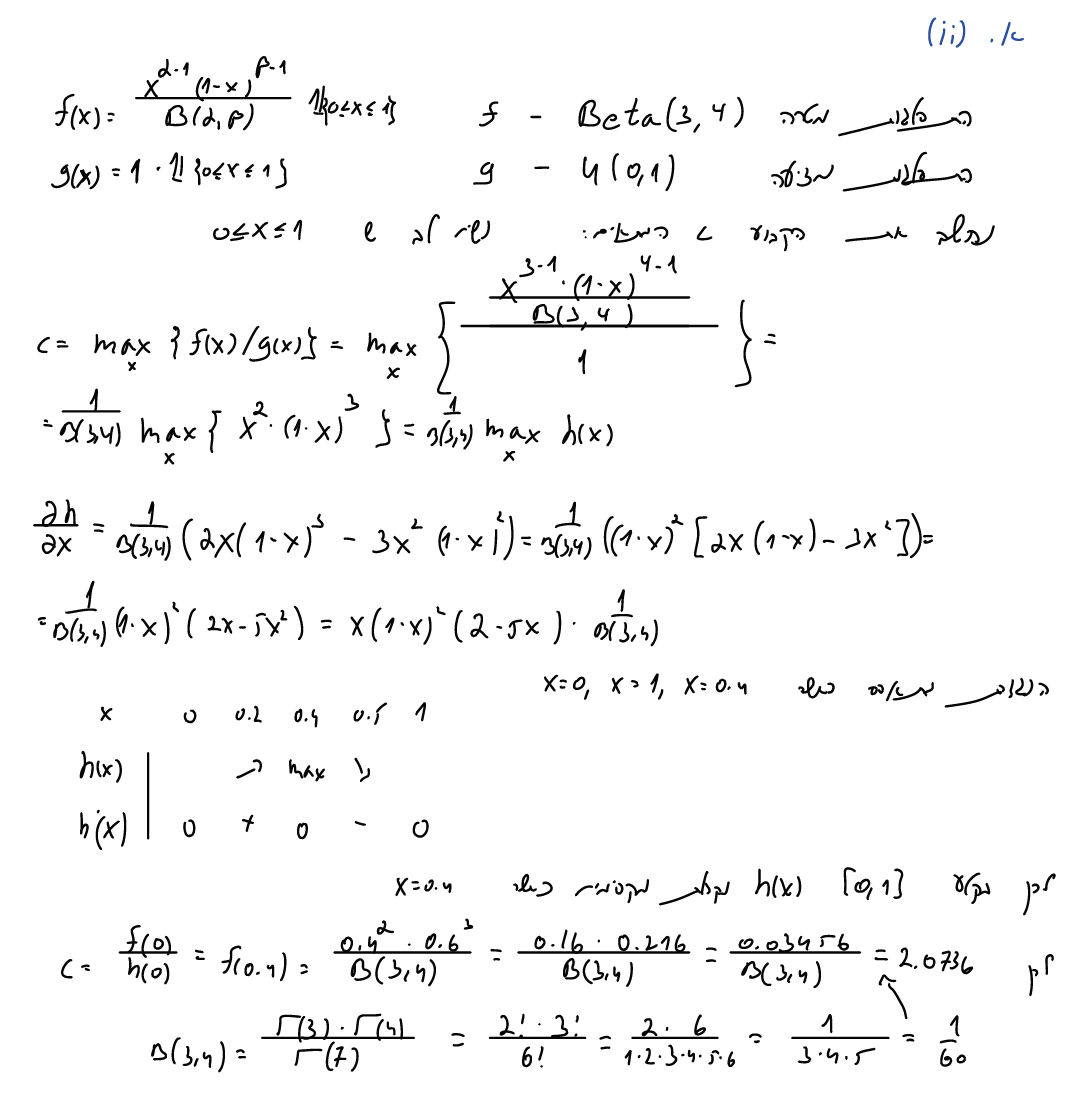 א. (ii)
f(x) = \frac{x^{α-1} (1-x)^{β-1}}{B(α,β)} 𝟙{0≤x≤1} התפלגות מטרה f - Beta(3,4)
g(x) = 1 · 𝟙{0≤x≤1} התפלגות מציעה g - U(0,1)
נחשב את הקבוע c המתאים: נשים לב ש 0≤x≤1
c = max_x {f(x)/g(x)} = max_x { \frac{\frac{x^{3-1}·(1-x)^{4-1}}{B(3,4)}}{1} } =
= \frac{1}{B(3,4)} max_x { x^2·(1-x)^3 } = \frac{1}{B(3,4)} max_x h(x)
\frac{∂h}{∂x} = \frac{1}{B(3,4)} (2x(1-x)^3 - 3x^2 (1-x)^2) = \frac{1}{B(3,4)} ((1-x)^2 [2x(1-x) - 3x^2]) =
= \frac{1}{B(3,4)} (1-x)^2 (2x-5x^2) = x(1-x)^2 (2-5x) · \frac{1}{B(3,4)}
הנגזרת מתאפס כאשר x=0, x=1, x=0.4
x 0 0.2 0.4 0.5 1
h(x) ↗ max ↘
h'(x) 0 + 0 - 0
לכן בקטע [0,1] h(x) מקבלת מקסימום כאשר x=0.4
לכן c = \frac{f(0)}{h(0)} = f(0.4) = \frac{0.4^2 · 0.6^3}{B(3,4)} = \frac{0.16 · 0.216}{B(3,4)} = \frac{0.03456}{B(3,4)} = 2.0736
B(3,4) = \frac{Γ(3)·Γ(4)}{Γ(7)} = \frac{2!·3!}{6!} = \frac{2·6}{1·2·3·4·5·6} = \frac{1}{3·4·5} = \frac{1}{60}